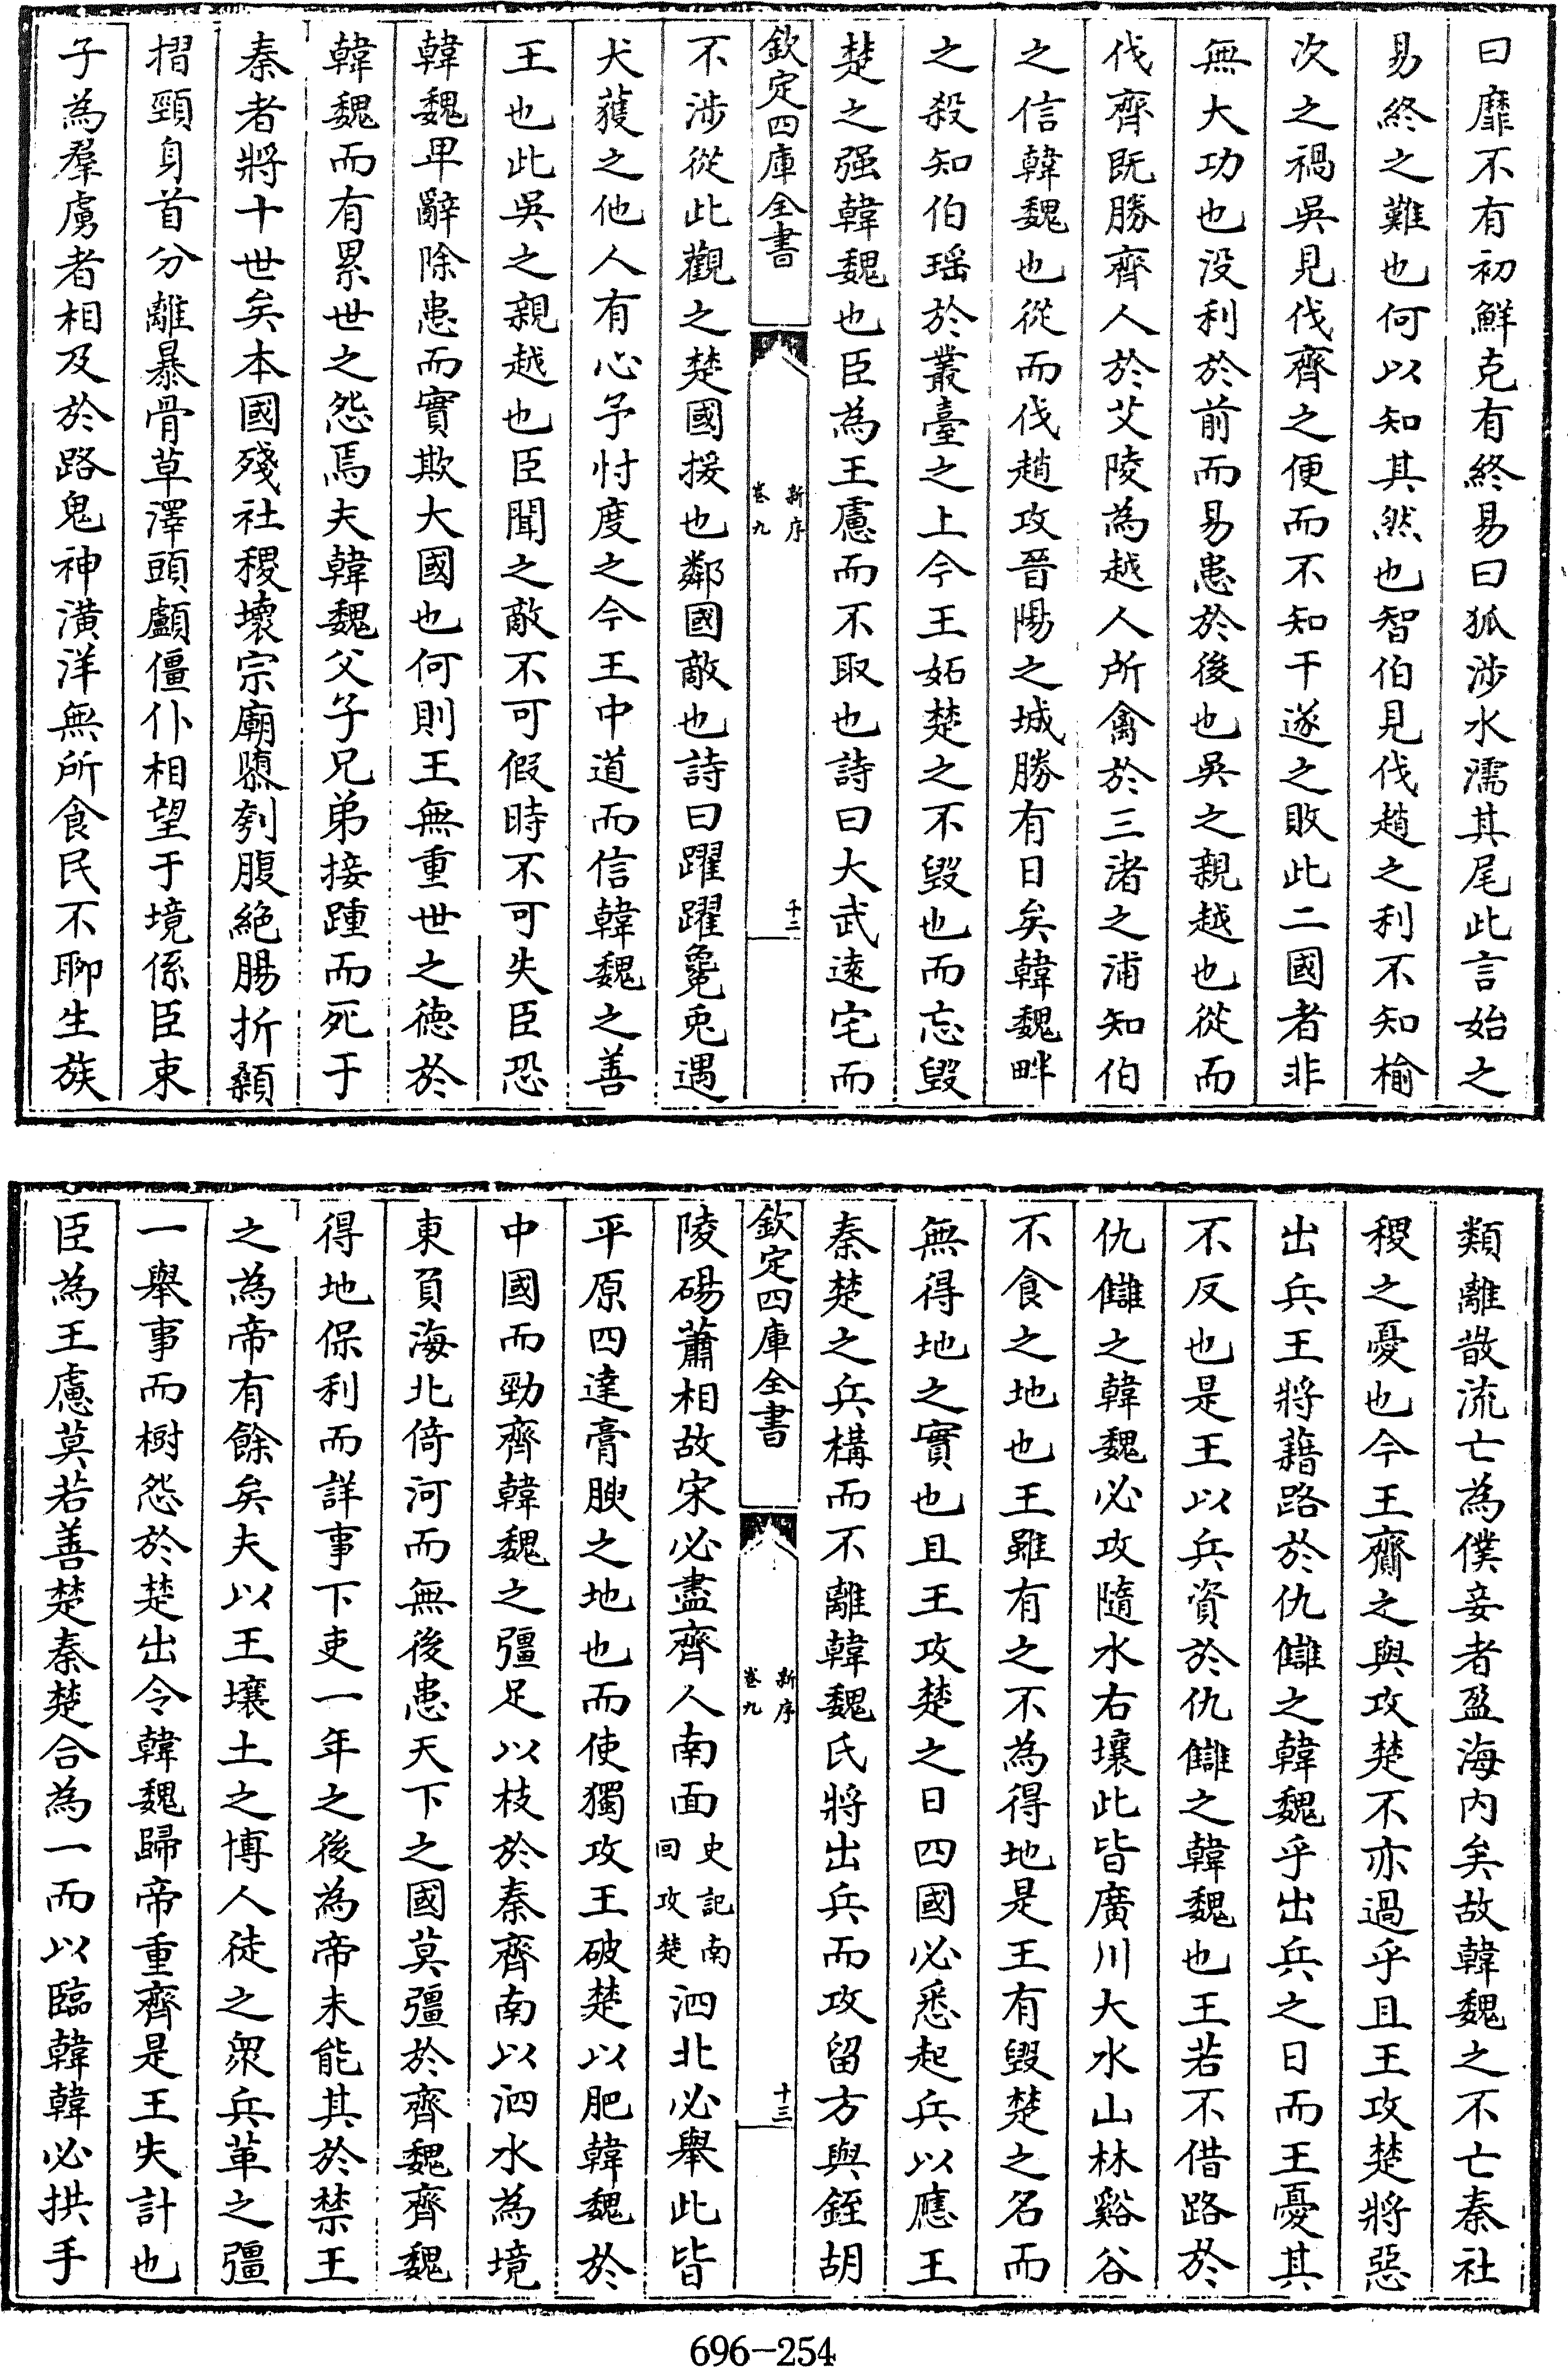 曰靡不有初鮮克有終易曰狐涉水濡其尾此言始之
易終之難也何以知其然也智伯見伐趙之利不知榆
次之禍吳見伐齊之便而不知干遂之敗此二國者非
無大功也没利於前而易患於後也吳之親越也從而
伐齊既勝齊人於艾陵為越人所禽於三渚之浦知伯
之信韓魏也從而伐趙攻晉陽之城勝有日矣韓魏畔
之殺知伯瑶於叢臺之上今王妬楚之不毀也而忘毀
楚之强韓魏也臣為王慮而不取也詩曰大武遠宅而
欽定四庫全書
新序
卷九
十二
不涉從此觀之楚國援也鄰國敵也詩曰躍躍毚兎遇
犬獲之他人有心予忖度之今王中道而信韓魏之善
王也此吳之親越也臣聞之敵不可假時不可失臣恐
韓魏卑辭除患而實欺大國也何則王無重世之德於
韓魏而有累世之怨焉夫韓魏父子兄弟接踵而死于
秦者將十世矣本國殘社稷壞宗廟隳刳腹絶腸折顙
摺頸身首分離暴骨草澤頭顱僵仆相望于境係臣束
子為羣虜者相及於路鬼神潢洋無所食民不聊生族
類離散流亡為僕妾者盈海内矣故韓魏之不亡秦社
稷之憂也今王齎之與攻楚不亦過乎且王攻楚將惡
出兵王將藉路於仇讎之韓魏乎出兵之日而王憂其
不反也是王以兵資於仇讎之韓魏也王若不借路於
仇讎之韓魏必攻隨水右壤此皆廣川大水山林谿谷
不食之地也王雖有之不為得地是王有毀楚之名而
無得地之實也且王攻楚之日四國必悉起兵以應王
秦楚之兵構而不離韓魏氏將出兵而攻留方與銍胡
欽定四庫全書
新序
卷九
十三
陵碭蕭相故宋必盡齊人南面史記南回攻楚泗北必舉此皆
平原四達膏腴之地也而使獨攻王破楚以肥韓魏於
中國而勁齊韓魏之彊足以枝於秦齊南以泗水為境
東負海北倚河而無後患天下之國莫彊於齊魏齊魏
得地保利而詳事下吏一年之後為帝未能其於禁王
之為帝有餘矣夫以王壤土之博人徒之衆兵革之彊
一舉事而樹怨於楚出令韓魏歸帝重齊是王失計也
臣為王慮莫若善楚秦楚合為一而以臨韓韓必拱手
696-254